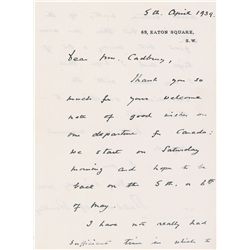 5th. April 1939.
69, EATON SQUARE,
S.W.
Dear Mrs. Cadbury,
Thank you so
much for your welcome
note of good wishes on
our departure for Canada:
we start on Saturday
morning and hope to be
back on the 5th. or 6th
of May.
I have not really had
sufficient time in which to